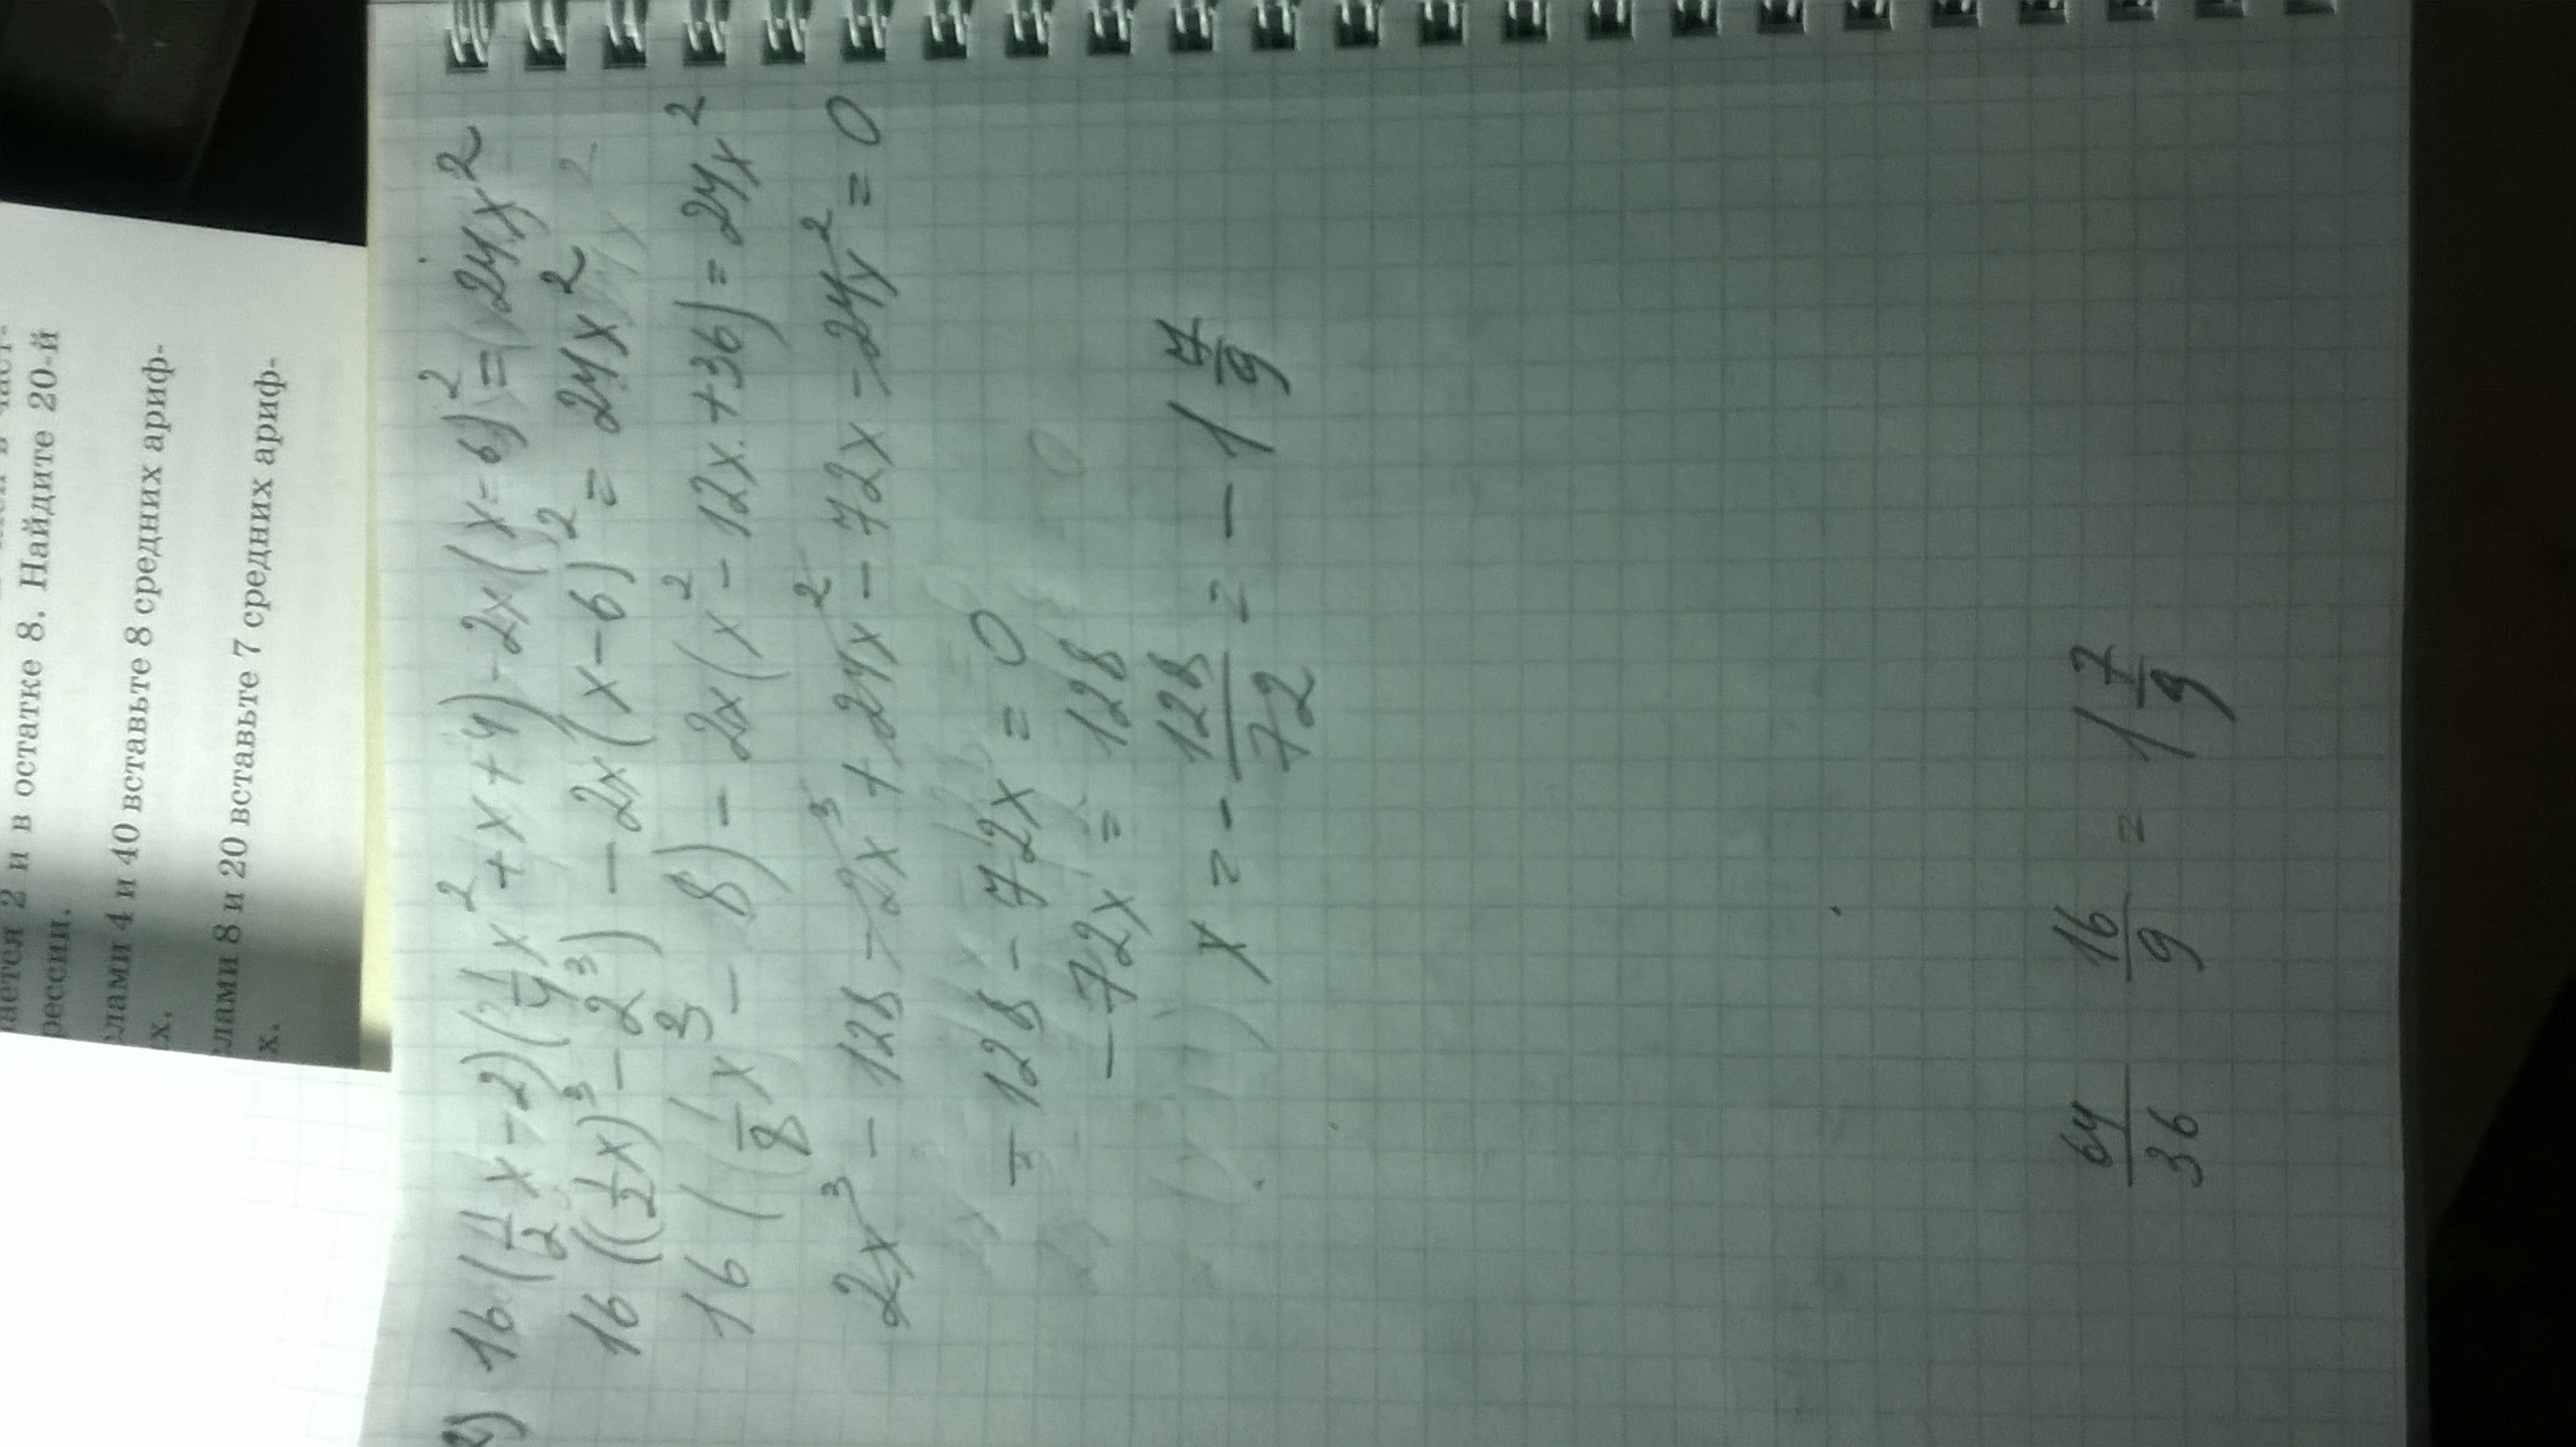 ается 2 и в остатке 8. Найдите 20-й
рессии.
лами 4 и 40 вставьте 8 средних ариф-
х.
лами 8 и 20 вставьте 7 средних ариф-
х.
2) 16(1/2x-2)(1/4x²+x+4)-2x(x-6)²=24x²
16((1/2x)³-2³)-2x(x-6)²=24x²
16(1/8x³-8)-2x(x²-12x+36)=24x²
2x³-128-2x³+24x²-72x-24x²=0
-128-72x=0
-72x=128
x=-128/72=-1 7/9
64/36 16/9 = 1 7/9